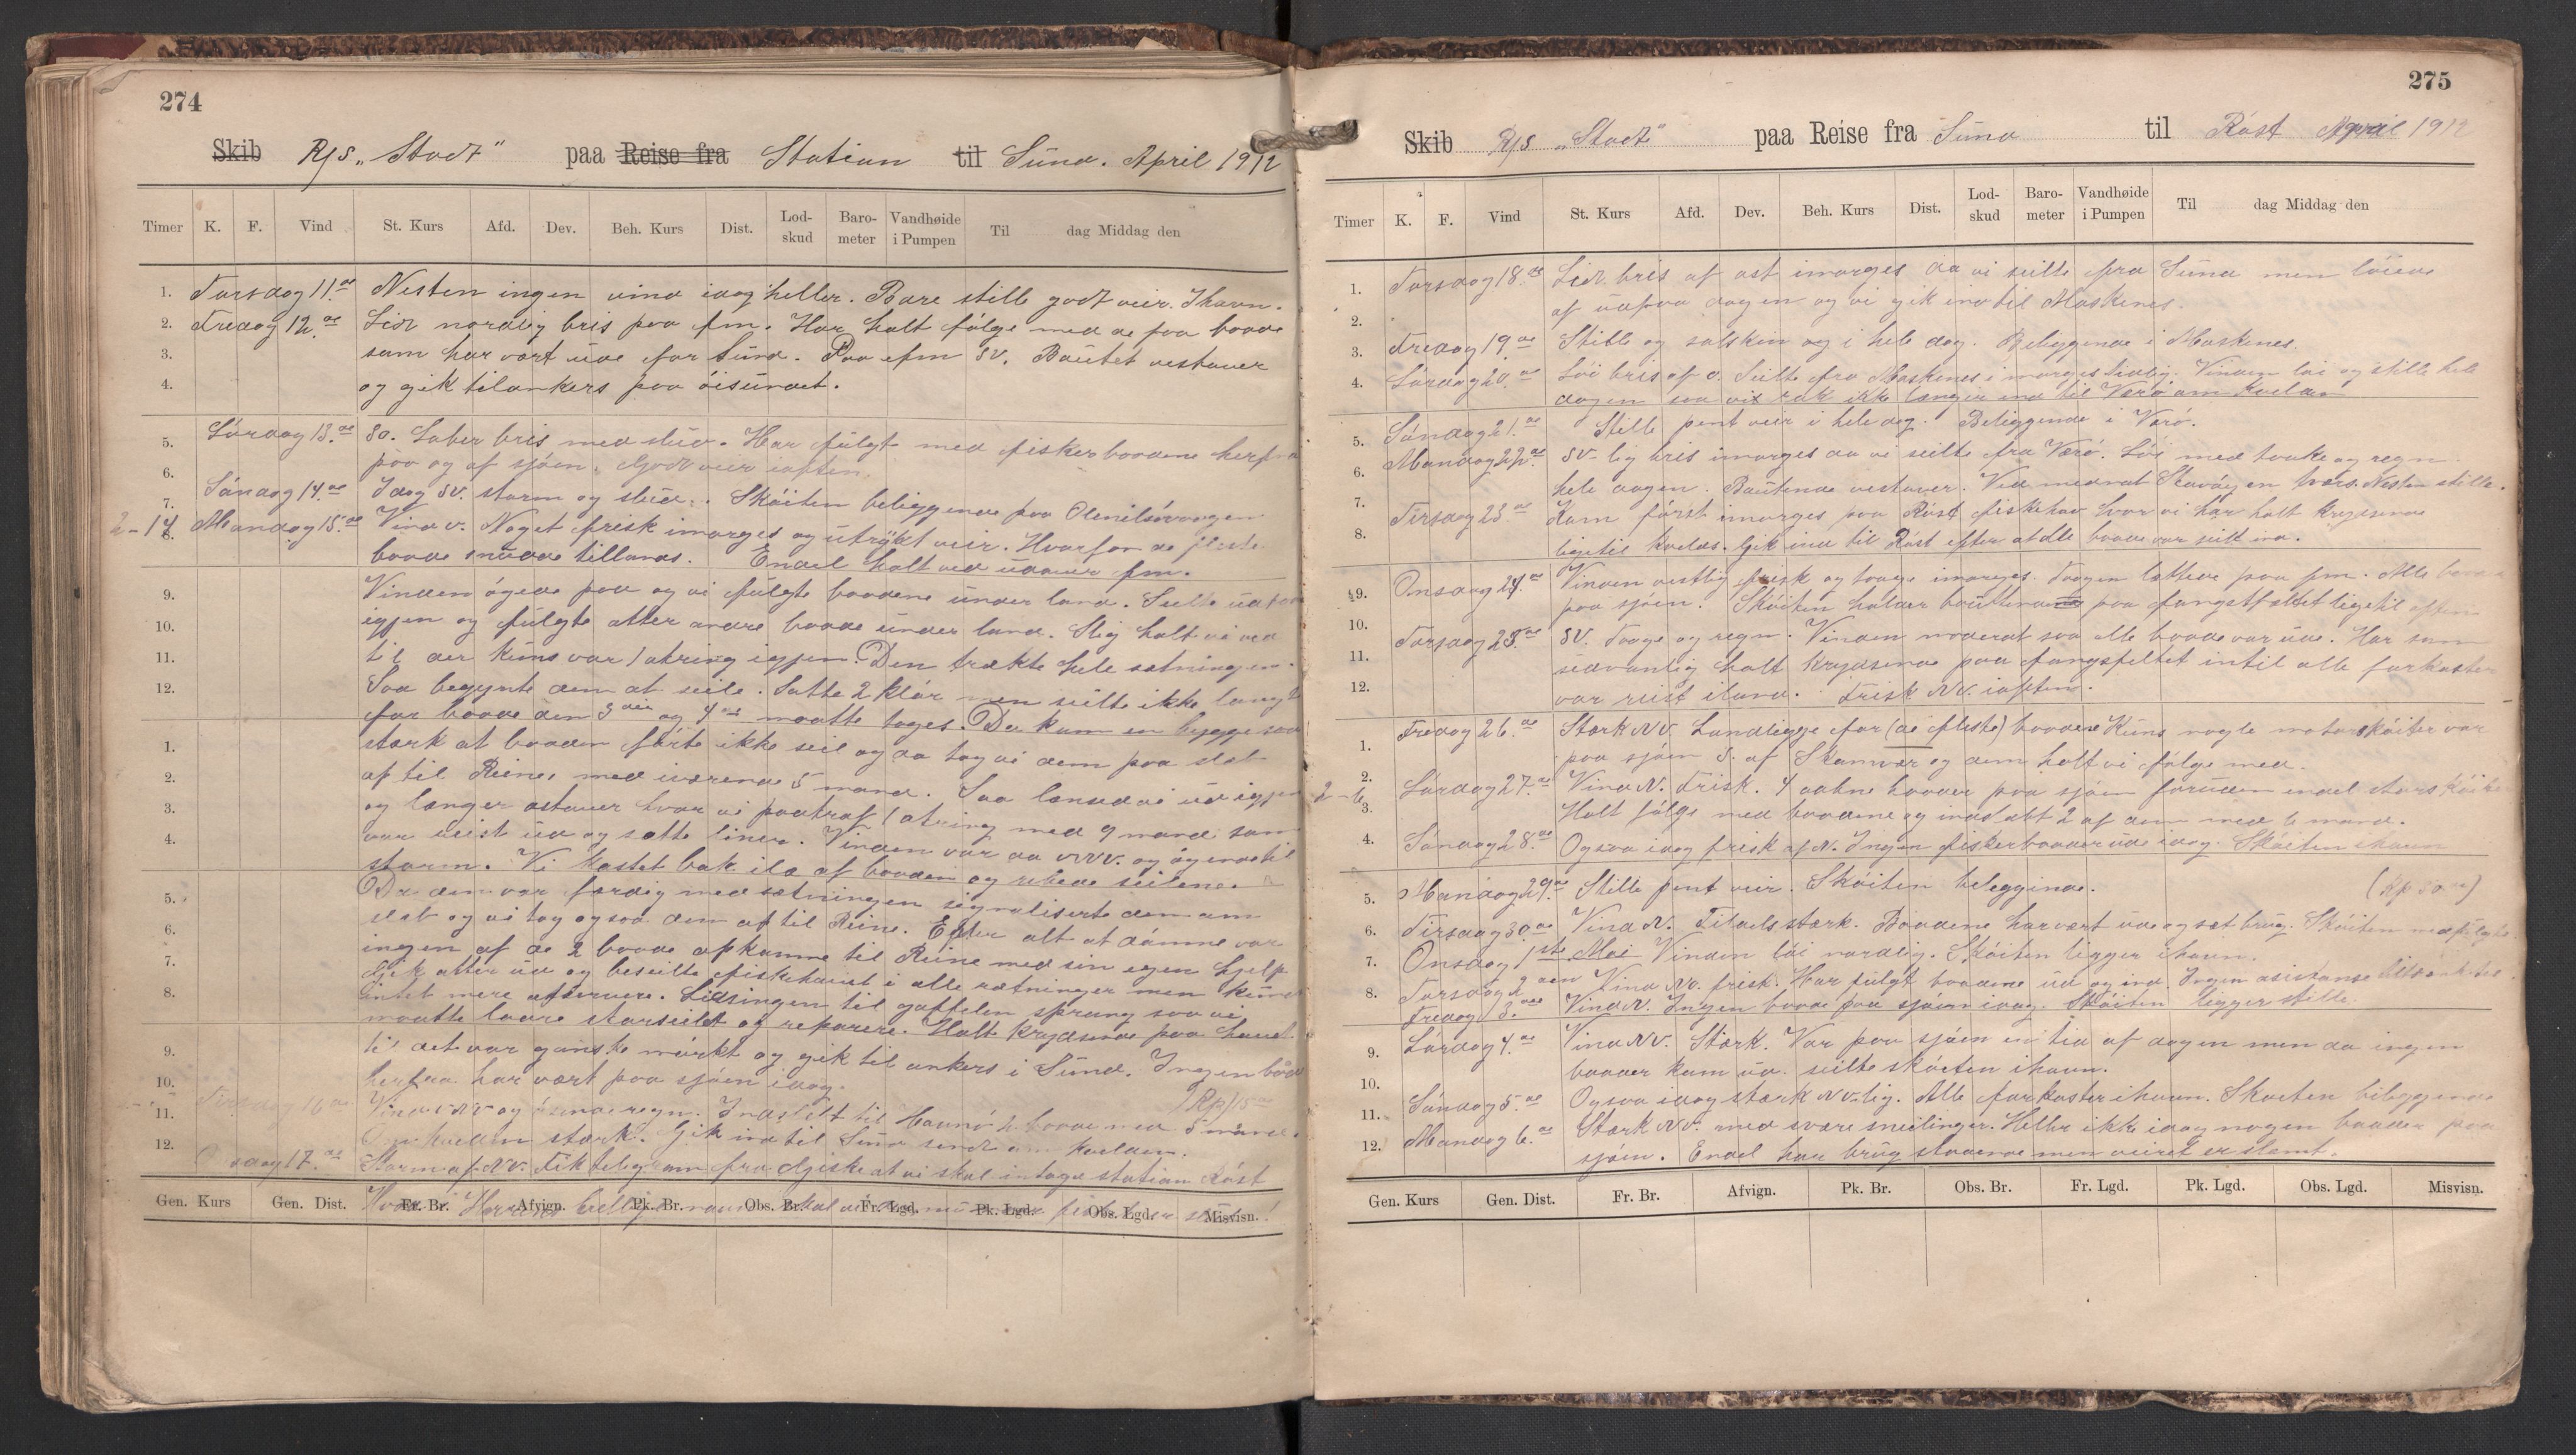 274
Skib R/S „Stadt" paa Reise fra Station til Sund. April 1912
Timer K. F. Vind St. Kurs Afd. Dev. Beh. Kurs Dist. Lod-skud Baro-meter Vandhøide i Pumpen Til dag Middag den
1. Torsdag 11.de Nesten ingen vind idag heller. Bare stille godt veir. Ihavn.
2. Fredag 12.de Lidt nordlig bris paa fm. Har holt følge med de faa baade
3. som har vært ude for Sund. Paa efm SV. Bautet vestover
4. og gik tilankers paa öisundet.
5. Lördag 13.de SO. Laber bris med slud. Har fülgt med fiskerbaadene herfra
6. paa og af sjöen. Godt veir iaften.
7. Söndag 14.de Idag SV. storm og slud. Sköiten beliggende paa Olenilsövaagen
2-14 8. Mandag 15.de Vind V. Noget frisk imorges og utrykt veir. Hvorfor de fleste
baade snudde tillands. Endel holt ved udover fm.
9. Vinden ögede paa og vi fulgte baadene under land. Seilte ud
10. igjen og fulgte atter andre baade under land. Slig holt vi ved
11. til der kuns var 1 otring igjen. Den trækte hele sætningen.
12. Saa begynte dem at seile. Satte 2 klör men seilte ikke langt
for baade den 3die og 4de maatte toges. Da kom en bygge saa
1. stærk at baaden förte ikke seil og da tog vi dem paa slæb
2. af til Reine, med iværende 5 mand. Saa lænsed vi ud igjen
3. og længer ostover hvor vi paatraf 1 otring med 9 mand som
4. var reist ud og sætte liner. Vinden var da VNV. og ögende til
storm. Vi kastet bak ilæ af baaden og rebede seilene.
5. Da dem var færdig med sætningen signaliserte dem om
6. slæb og vi tog ogsaa dem af til Reine. Efter alt at dömme var
7. ingen af de 2 baade opkomne til Reine med sin egen hjelp.
8. Gik atter ud og beseilte fiskehavet i alle rætninger men kunde
intet mere observere. Lidsingen til gaffelen sprang saa vi
maatte laare storseilet og reparere. Holt krydsende paa havet
9. til det var ganske mörkt og gik til ankers i Sund. Ingen baad
10. herfra har vært paa sjöen idag. (Rp) 15
11. Tirsdag 16 de Vind VNV og regn. Indseilt til Havnö 2 baade med 5 mand.
12. Om kvelden stærk. Gik ind til Sund sendt om kvelden.
Onsdag 17.de Storm af NV. Fik telegram fra Giske at vi skal indtage station Röst
Gen. Kurs Gen. Dist. Fr. Br. Afvign. Pk. Br. Obs. Br. Fr. Lgd. Pk. Lgd. Obs. Lgd. Misvisn.
275
Skib R/S „Stadt" paa Reise fra Sund til Röst April 1912
Timer K. F. Vind St. Kurs Afd. Dev. Beh. Kurs Dist. Lod-skud Baro-meter Vandhøide i Pumpen Til dag Middag den
1. Torsdag 18.de Lidt bris af ost imorges da vi seilte fra Sund men löiede
2. af udpaa dagen og vi gik ind til Moskenes.
3. Fredag 19.de Stille og solskin og i hele dag. Beliggende i Moskenes.
4. Lördag 20.de Löi bris af O. Seilte fra Moskenes imorges tidlig. Vinden löi og stille hele
dagen saa vi rak ikke længer ind til Værö om kvelden
5. Söndag 21.de Stille pent veir i hele dag. Beliggende i Værö.
6. Mandag 22.de SV-lig bris imorges da vi seilte fra Værö. Löi med tooke og regn
7. hele dagen. Bautende vestover. Ved mednat Stavöyen tværs. Nesten stille.
8. Tirsdag 23.de Kom först imorges paa Röst fiskehav hvor vi har holt krydsende
ligetil kvelds. Gik ind til Röst efter at alle baade var seilt ind.
9. Onsdag 24.de Vinden vestlig frisk og taage imorges. Taagen lættede paa fm. Alle
10. paa sjöen. Sköiten holder bautende paa fangstfeltet ligetil aften
11. Torsdag 25.de SV. Taage og regn. Vinden moderat saa alle baade var ude. Har som
12. sedvanlig holt krydsende paa fangsfeltet intil alle farkoster
var reist iland. Frisk NV. iaften.
1. Fredag 26.de Stærk NV. Landligge for (de fleste) baadene Kuns nogle motorsköiter var
2. paa sjöen S. af Skomvær og dem holt vi følge med.
2-6 3. Lördag 27.de Vind N. Frisk. 4 aabne baader paa sjöen foruden endel
Holt følge med baadene og indslæbt 2 af dem med 6 mand.
4. Söndag 28.de Ogsaa idag frisk af N. Ingen fiskerbaader ude idag. Sköiten ihavn
5. Mandag 29.de Stille pent veir. Sköiten beleggende. (Rp 30)
6. Tirsdag 30.de Vind N. Tildels stærk. Baadene har vært ude og sæt brug. Sköiten medfülgte.
7. Onsdag 1ste Mai Vinden löi nordlig. Sköiten ligger ihavn.
8. Torsdag 2den Vind NV. frisk. Har fulgt baadene ud og ind. Ingen asistanse
Fredag 3.die Vind N. Ingen baade paa sjöen idag. Sköiten ligger stille.
9. Lördag 4.de Vind NV. Stærk. Var paa sjöen en tid af dagen men da ingen
10. baader kom ud seilte sköiten ihavn.
11. Söndag 5.de Ogsaa idag stærk NV-lig. Alle farkoster ihavn. Skøiten beliggende
12. Mandag 6.de Stærk NV. med svære sneilinger. Heller ikke idag nogen baader paa
sjöen. Endel har brug staaende men veiret er slemt.
Gen. Kurs Gen. Dist. Fr. Br. Afvign. Pk. Br. Obs. Br. Fr. Lgd. Pk. Lgd. Obs. Lgd. Misvisn.